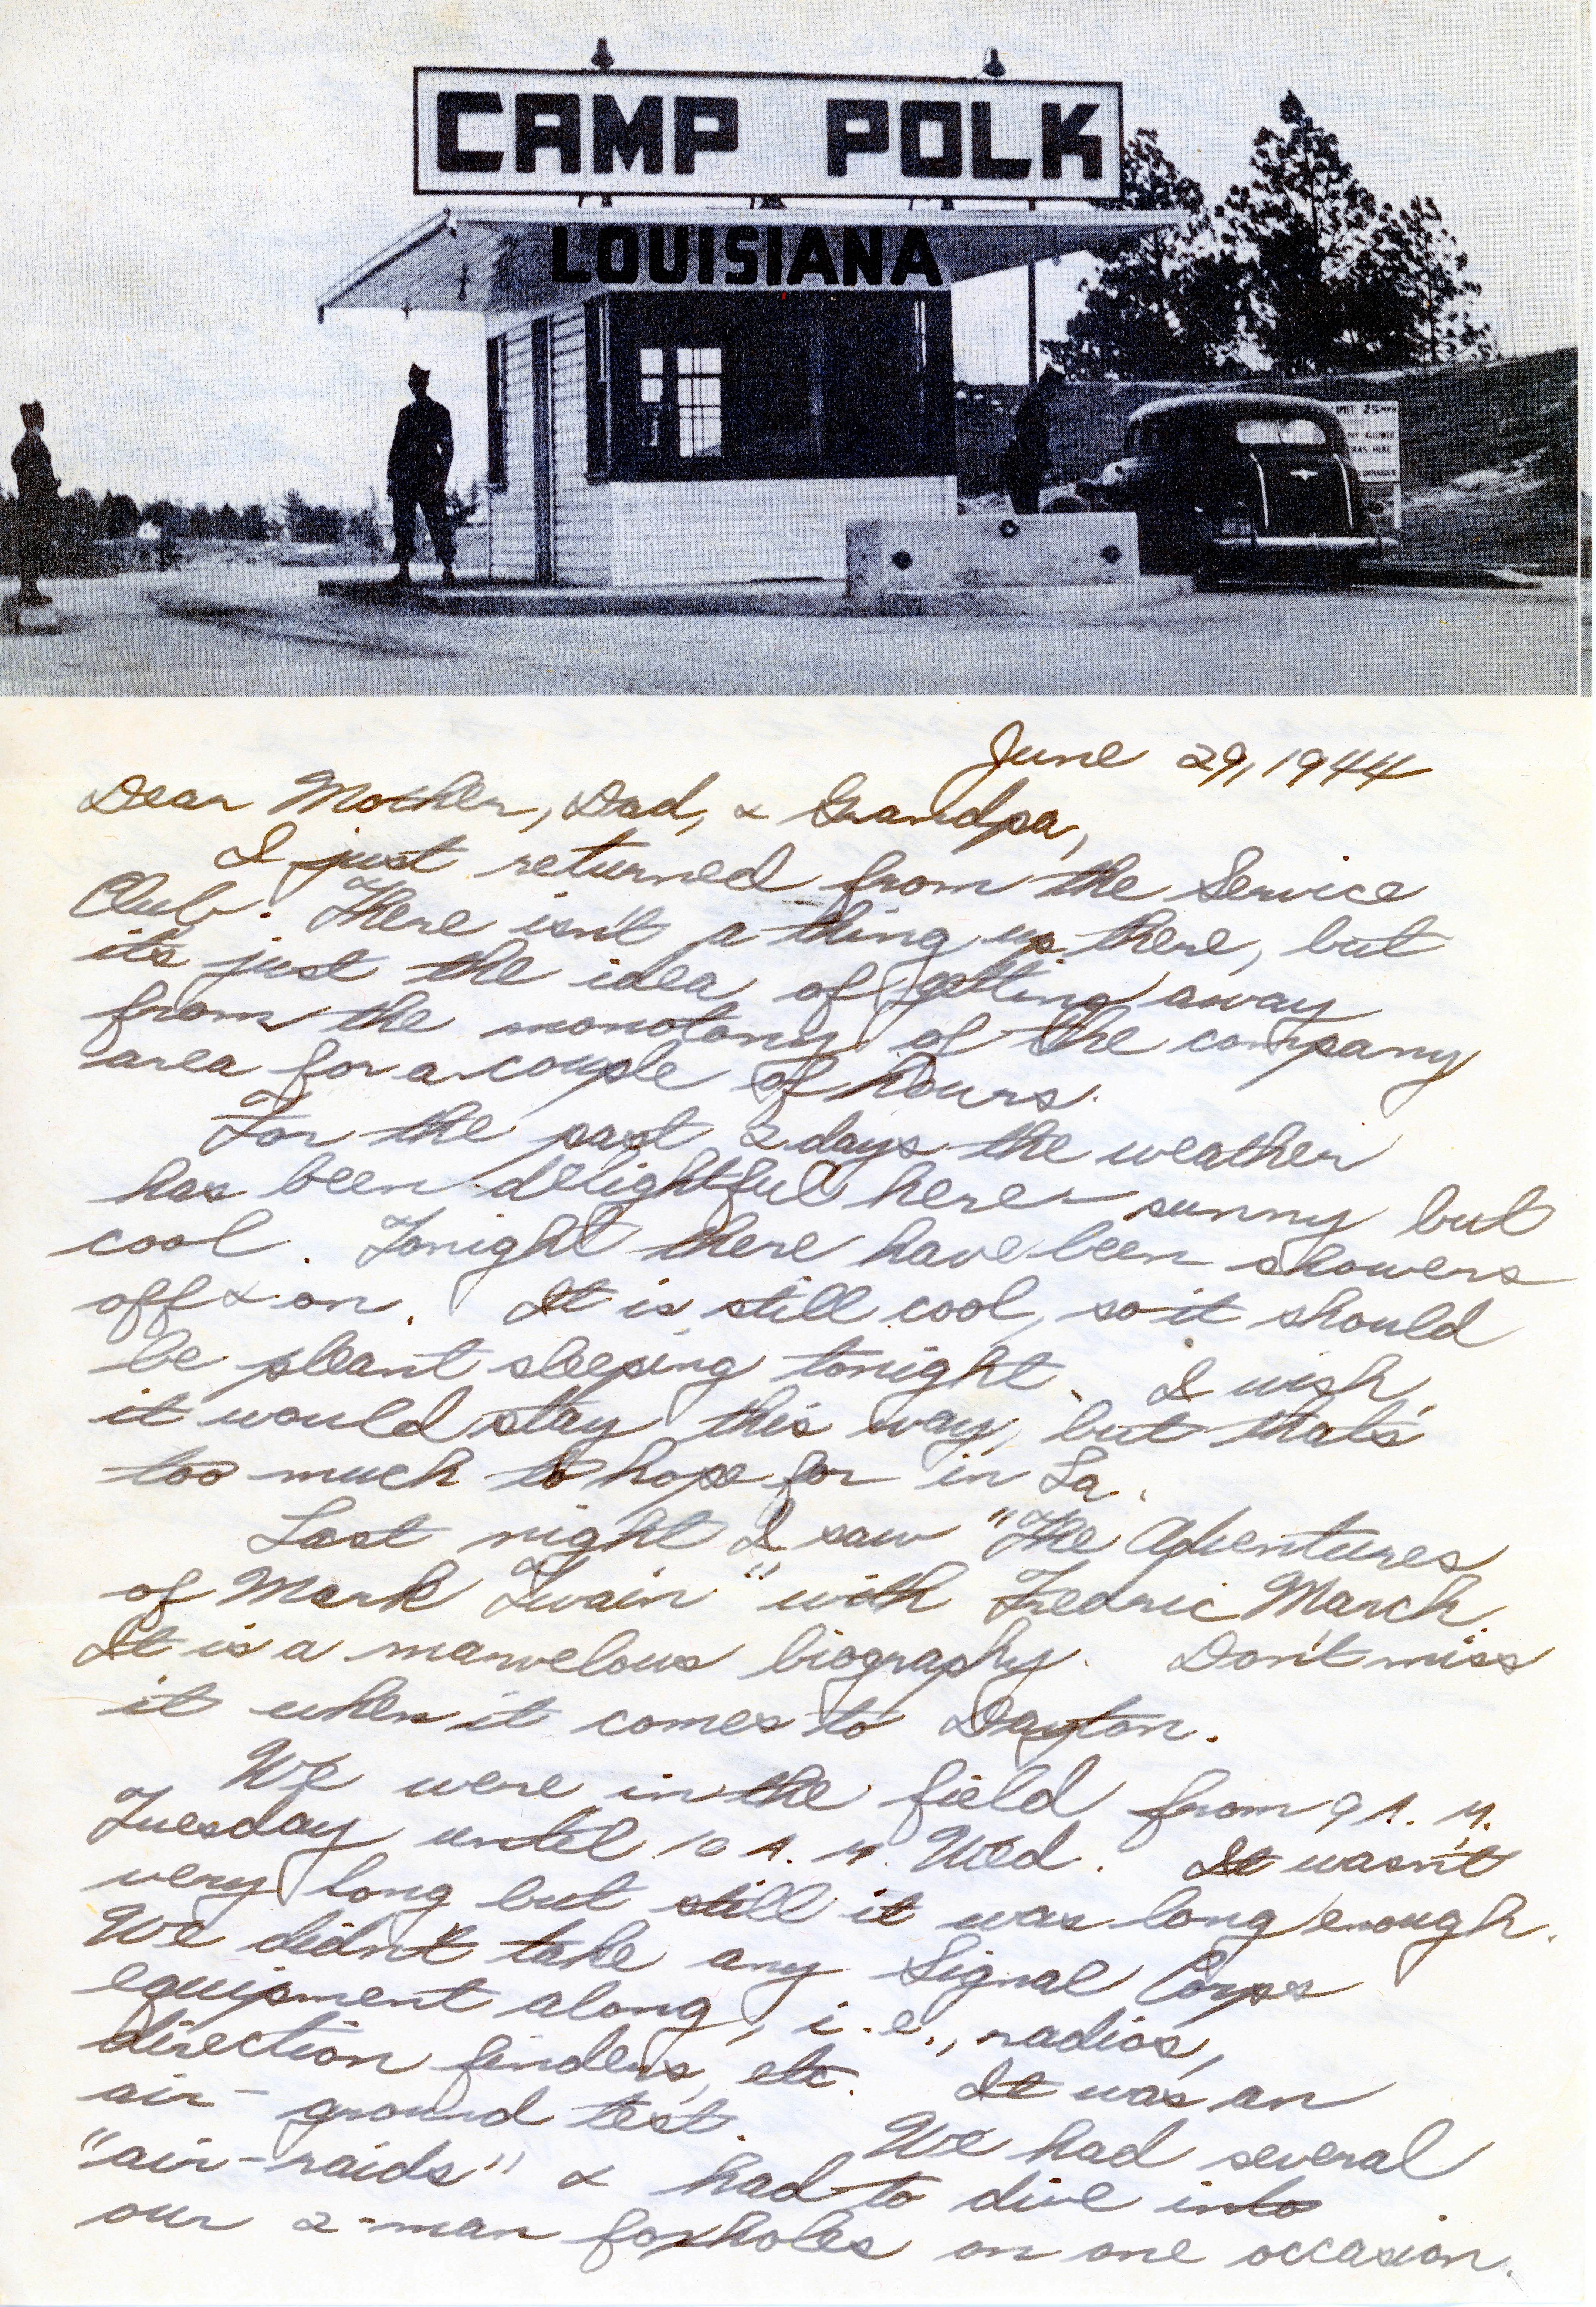 CAMP POLK
LOUISIANA
LIMIT 25 MPH
ALLOWED
June 29, 1944
Dear Mother, Dad, & Grandpa,
I just returned from the Service
Club. There isn't a thing up there, but
its just the idea of getting away
from the monotony of the company
area for a couple of hours.
For the past 2 days the weather
has been delightful here - sunny but
cool. Tonight there have been showers
off & on. It is still cool, so it should
be pleant sleeping tonight. I wish
it would stay this way, but that's
too much to hope for in La.
Last night I saw "The Adventures
of Mark Twain" with Fredric March.
It is a marvelous biography. Don't miss
it when it comes to Dayton.
We were in the field from 9 A.M.
Tuesday until 10 A.M. Wed. It wasn't
very long but still it was long enough.
We didn't take any Signal Corps
equipment along, i.e., radios,
direction finders, etc. It was an
air-ground test. We had several
"air-raids" & had to dive into
our 2-man foxholes on one occasion.